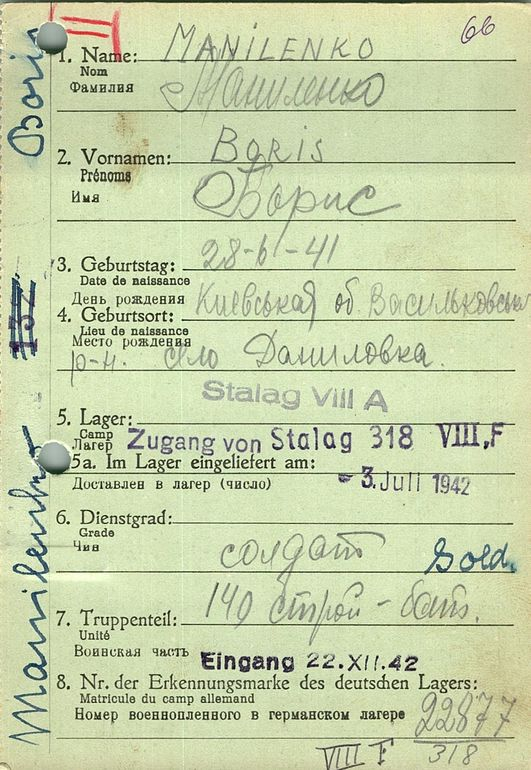 66
1. Name: MANILENKO
Nom
Фамилия Маниленко
2. Vornamen: BORIS
Prénoms
Имя Борис
3. Geburtstag: 28-6-41
Date de naissance
День рождения Киевськая об. Васильковськ
4. Geburtsort:
Lieu de naissance
Место рождения
р-н. село Даниловка.
Stalag VIII A
5. Lager:
Camp
Лагер Zugang von Stalag 318 VIII,F
5a. Im Lager eingeliefert am:
Доставлен в лагер (число) - 3. Juli 1942
6. Dienstgrad:
Grade
Чин солдат Sold.
7. Truppenteil: 140 строй-бат.
Unité
Воинская часть Eingang 22.XII.42
8. Nr. der Erkennungsmarke des deutschen Lagers:
Matricule du camp allemand
Номер военнопленного в германском лагере 22877
VIII F 318
Manilenko Boris